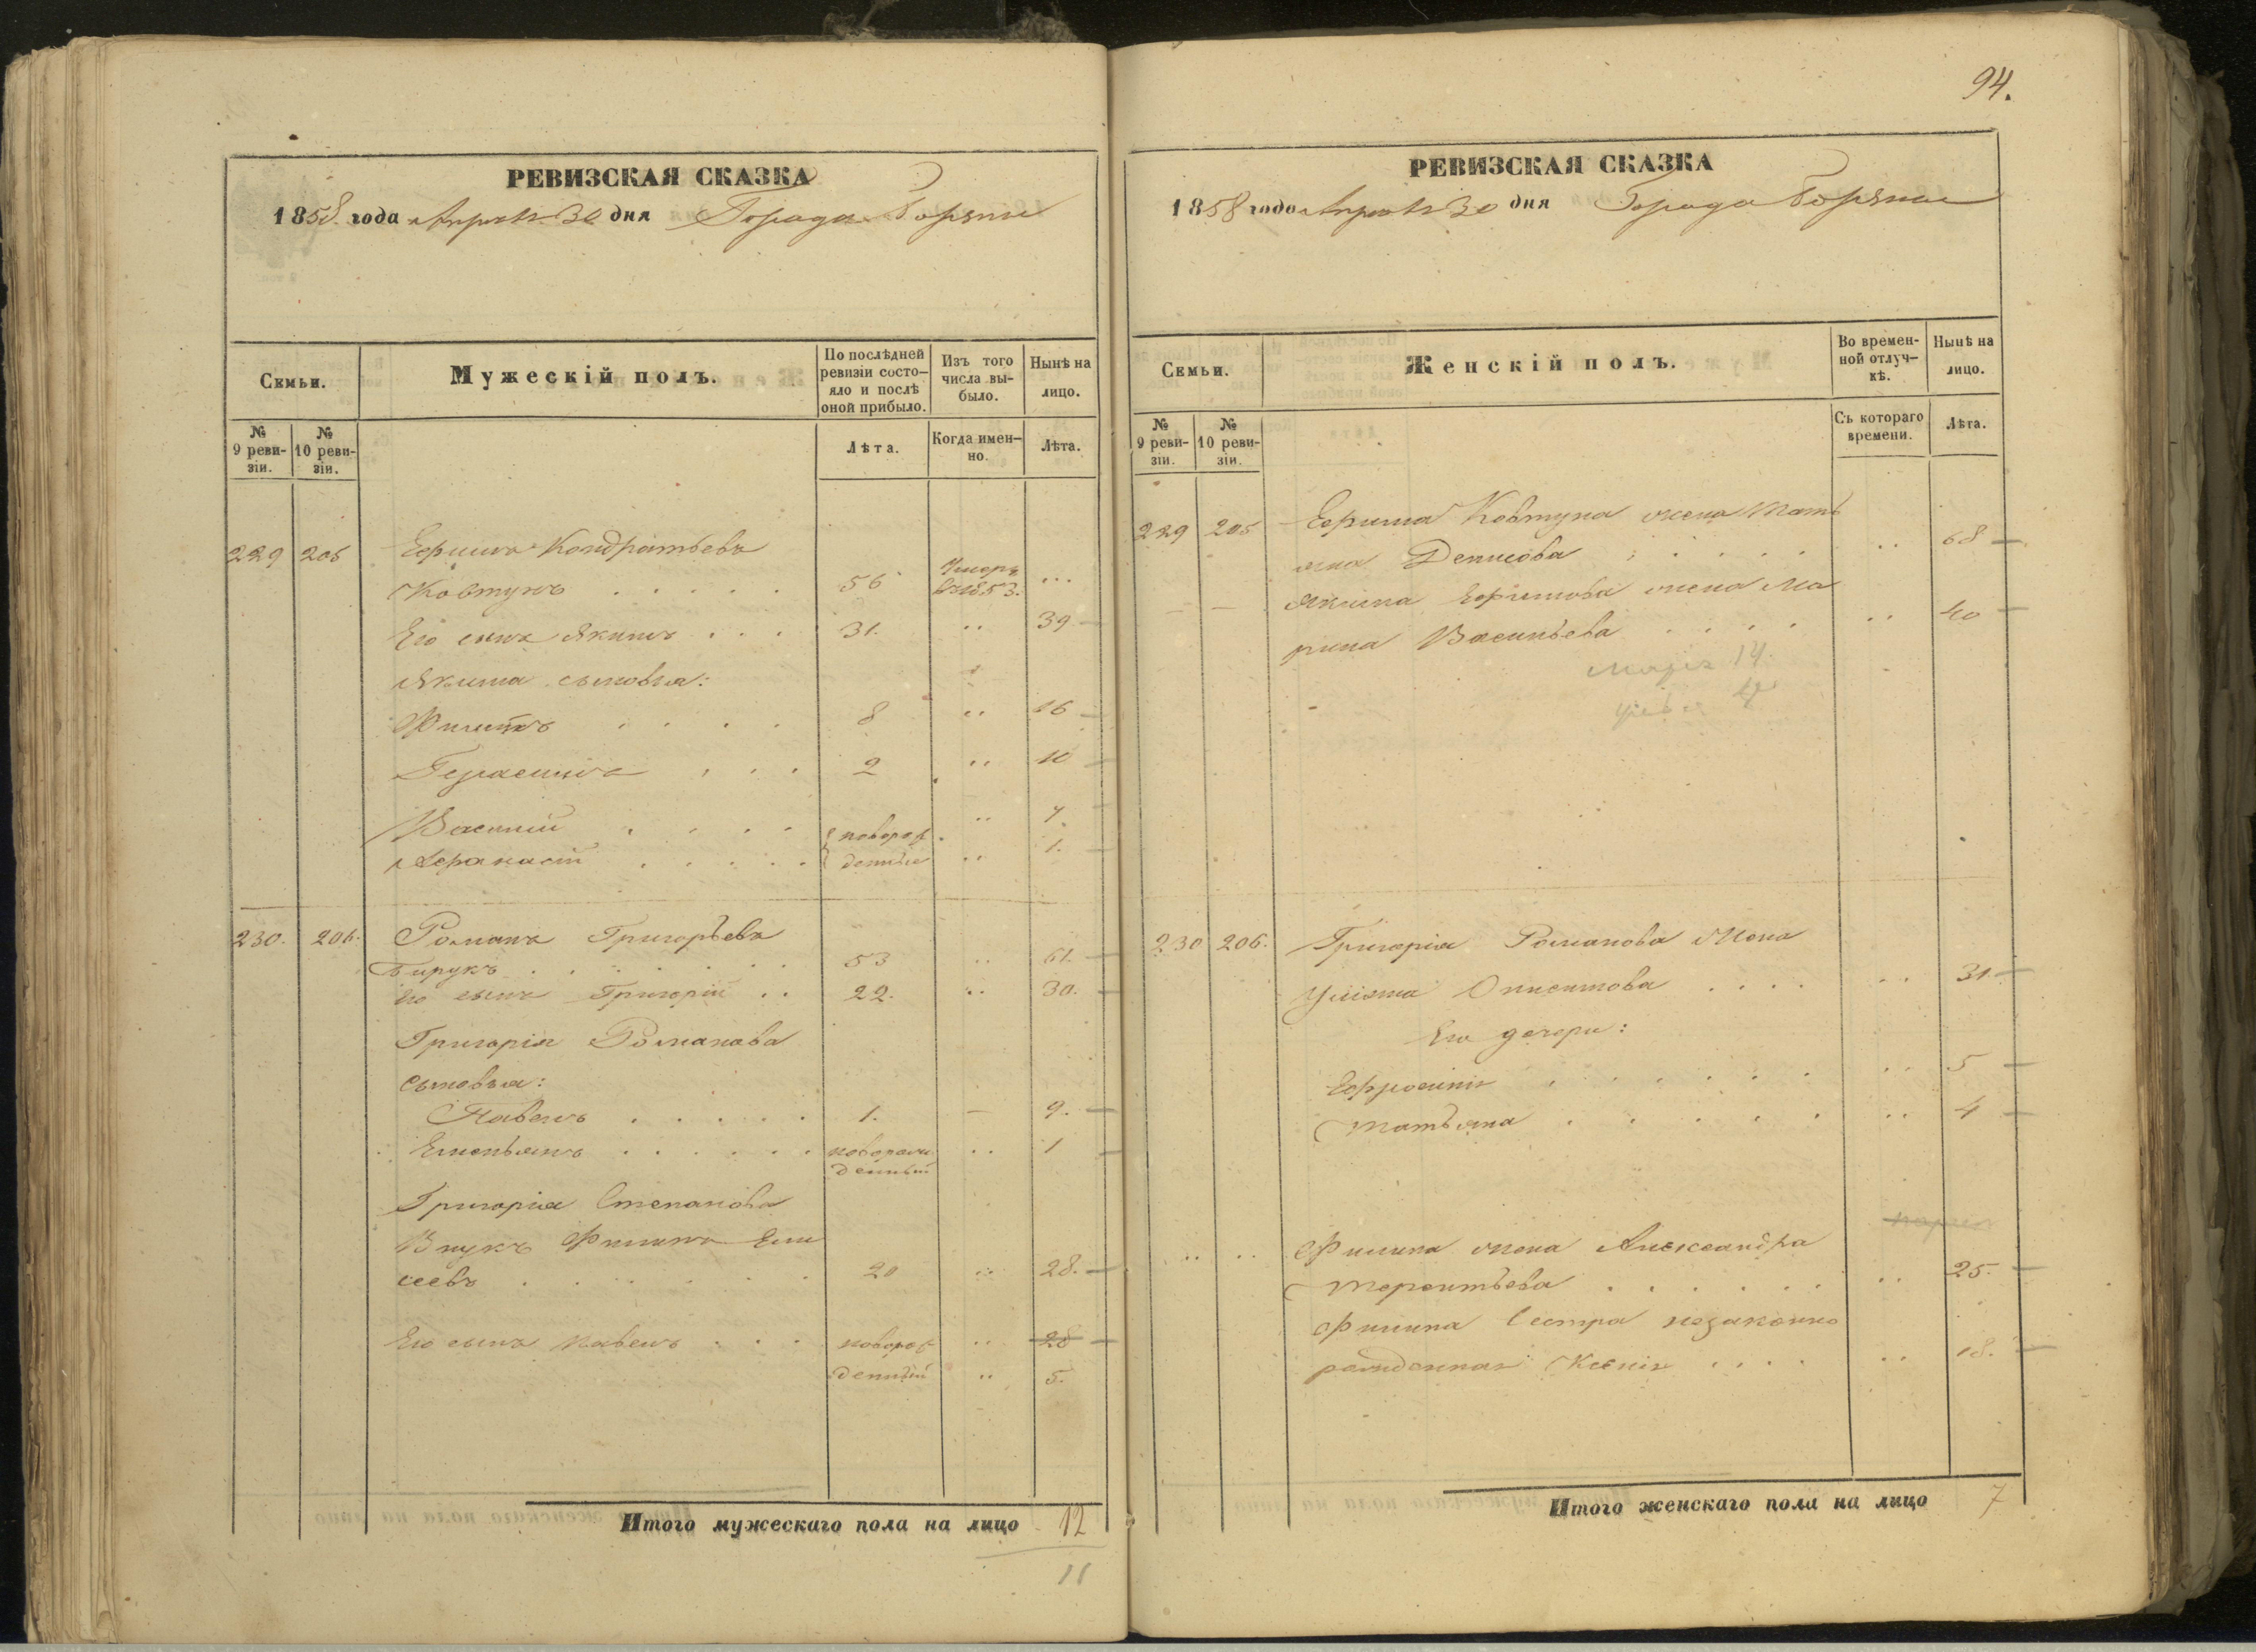 РЕВИЗСКАЯ СКАЗКА
1858 года Апреля 30 дня Города
Семьи.
Мужескій полъ.
По послѣдней ревизіи состо-
яло и послѣ оной прибыло.
Изъ того числа вы-
было.
Нынѣ на лицо.
№ 9 реви-
зіи.
№ 10 реви-
зіи.
Лѣта.
Когда имен-
но.
Лѣта.
229 205 Ефимъ Кондратьевъ
Ковтунъ . . . . . 56 Умеръ въ 1853. ...
Его сынъ Якимъ . . . 31. .. 39
Якима сыновья:
Филипъ . . . . 8 .. 16
Герасимъ . . . 2 .. 10
Василій . . . . новорож .. 7.
Афанасій . . . . . денные .. 1.
230. 206. Романъ Григорьевъ
Бирукъ . . . . . . . 53 .. 61.
Его сынъ Григорій . . 22. .. 30.
Григорія Романова
сыновья:
Павелъ . . . . . 1. — 9.
Емельянъ . . . . . . новорож
денный .. 1
Григорія Степанова
Внукъ Филипъ Ели
сеевъ . . . . . . 20 .. 28.
Его сынъ Павелъ . . . новорож .. 28
денный .. 5.
Итого мужескаго пола на лицо 12
11
94.
РЕВИЗСКАЯ СКАЗКА
1858 года Апреля 30 дня Города
Семьи.
Женскій полъ.
Во времен-
ной отлуч-
кѣ.
Нынѣ на лицо.
№ 9 реви-
зіи.
№ 10 реви-
зіи.
Съ котораго времени.
Лѣта.
229 205 Ефима Ковтуна жена Тать
яна Денисова . . . . . .. 68
— — Якима Ефимова жена Ма
рина Васильева . . . . .. 40
Марія 14.
230 206. Григорія Романова Жена
Ульяна Онисимова . . . . .. 31
Его дочери:
Ефросинія . . . . . . .. 5
Татьяна . . . . . .. 4
.. .. Филипа жена Александра
Терентьева . . . . . . .. 25.
Филипа Сестра незаконно
рожденная Ксенія . . . . .. 18.
Итого женскаго пола на лицо 7